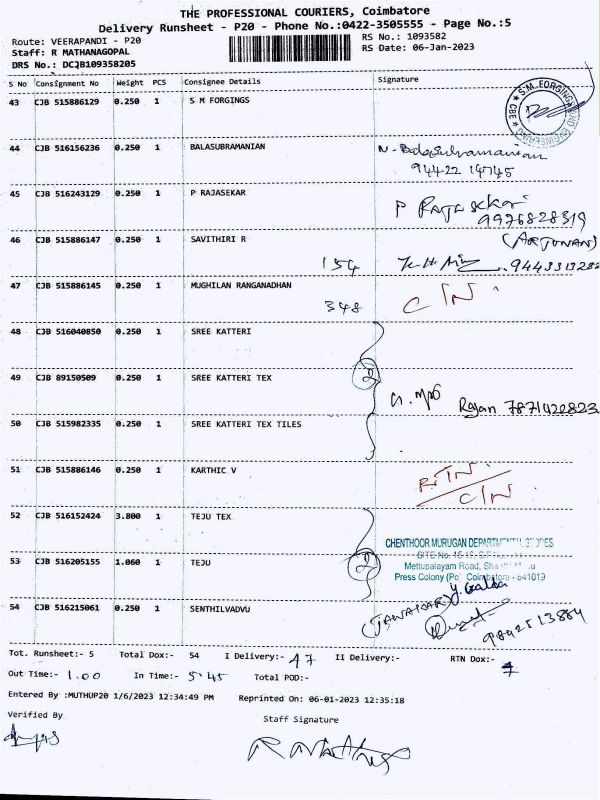 THE PROFESSIONAL COURIERS, Coimbatore
Delivery Runsheet - P20 - Phone No.:0422-3505555 - Page No.:5
Route: VEERAPANDI - P20
RS No.: 1093582
Staff: R MATHANAGOPAL
RS Date: 06-Jan-2023
DRS No.: DCJB109358205
S No Consignment No Weight PCS Consignee Details Signature
43 CJB 515886129 0.250 1 S M FORGINGS
S.M. FORGING
CBE
44 CJB 516156236 0.250 1 BALASUBRAMANIAN N. Balasubramanian
94422 14745
45 CJB 516243129 0.250 1 P RAJASEKAR P Rajasekar
9976828319
46 CJB 515886147 0.250 1 SAVITHIRI R (ARJUNAN)
154 9443313282
47 CJB 515886145 0.250 1 MUGHILAN RANGANADHAN C/N.
348
48 CJB 516040850 0.250 1 SREE KATTERI
49 CJB 89150509 0.250 1 SREE KATTERI TEX 2
Rajan 7871422823
50 CJB 515982335 0.250 1 SREE KATTERI TEX TILES
51 CJB 515886146 0.250 1 KARTHIC V RTN.
C/N
52 CJB 516152424 3.800 1 TEJU TEX
CHENTHOOR MURUGAN DEPARTMENTAL STORES
53 CJB 516205155 1.060 1 TEJU 2
Mettupalayam Road,
Press Colony (Po) Coimbatore - 641019
54 CJB 516215061 0.250 1 SENTHILVADVU
9842513884
Tot. Runsheet:- 5 Total Dox:- 54 I Delivery:- 47 II Delivery:- RTN Dox:- 7
Out Time:- 1.00 In Time:- 5.45 Total POD:-
Entered By :MUTHUP20 1/6/2023 12:34:49 PM Reprinted On: 06-01-2023 12:35:18
Verified By
Staff Signature